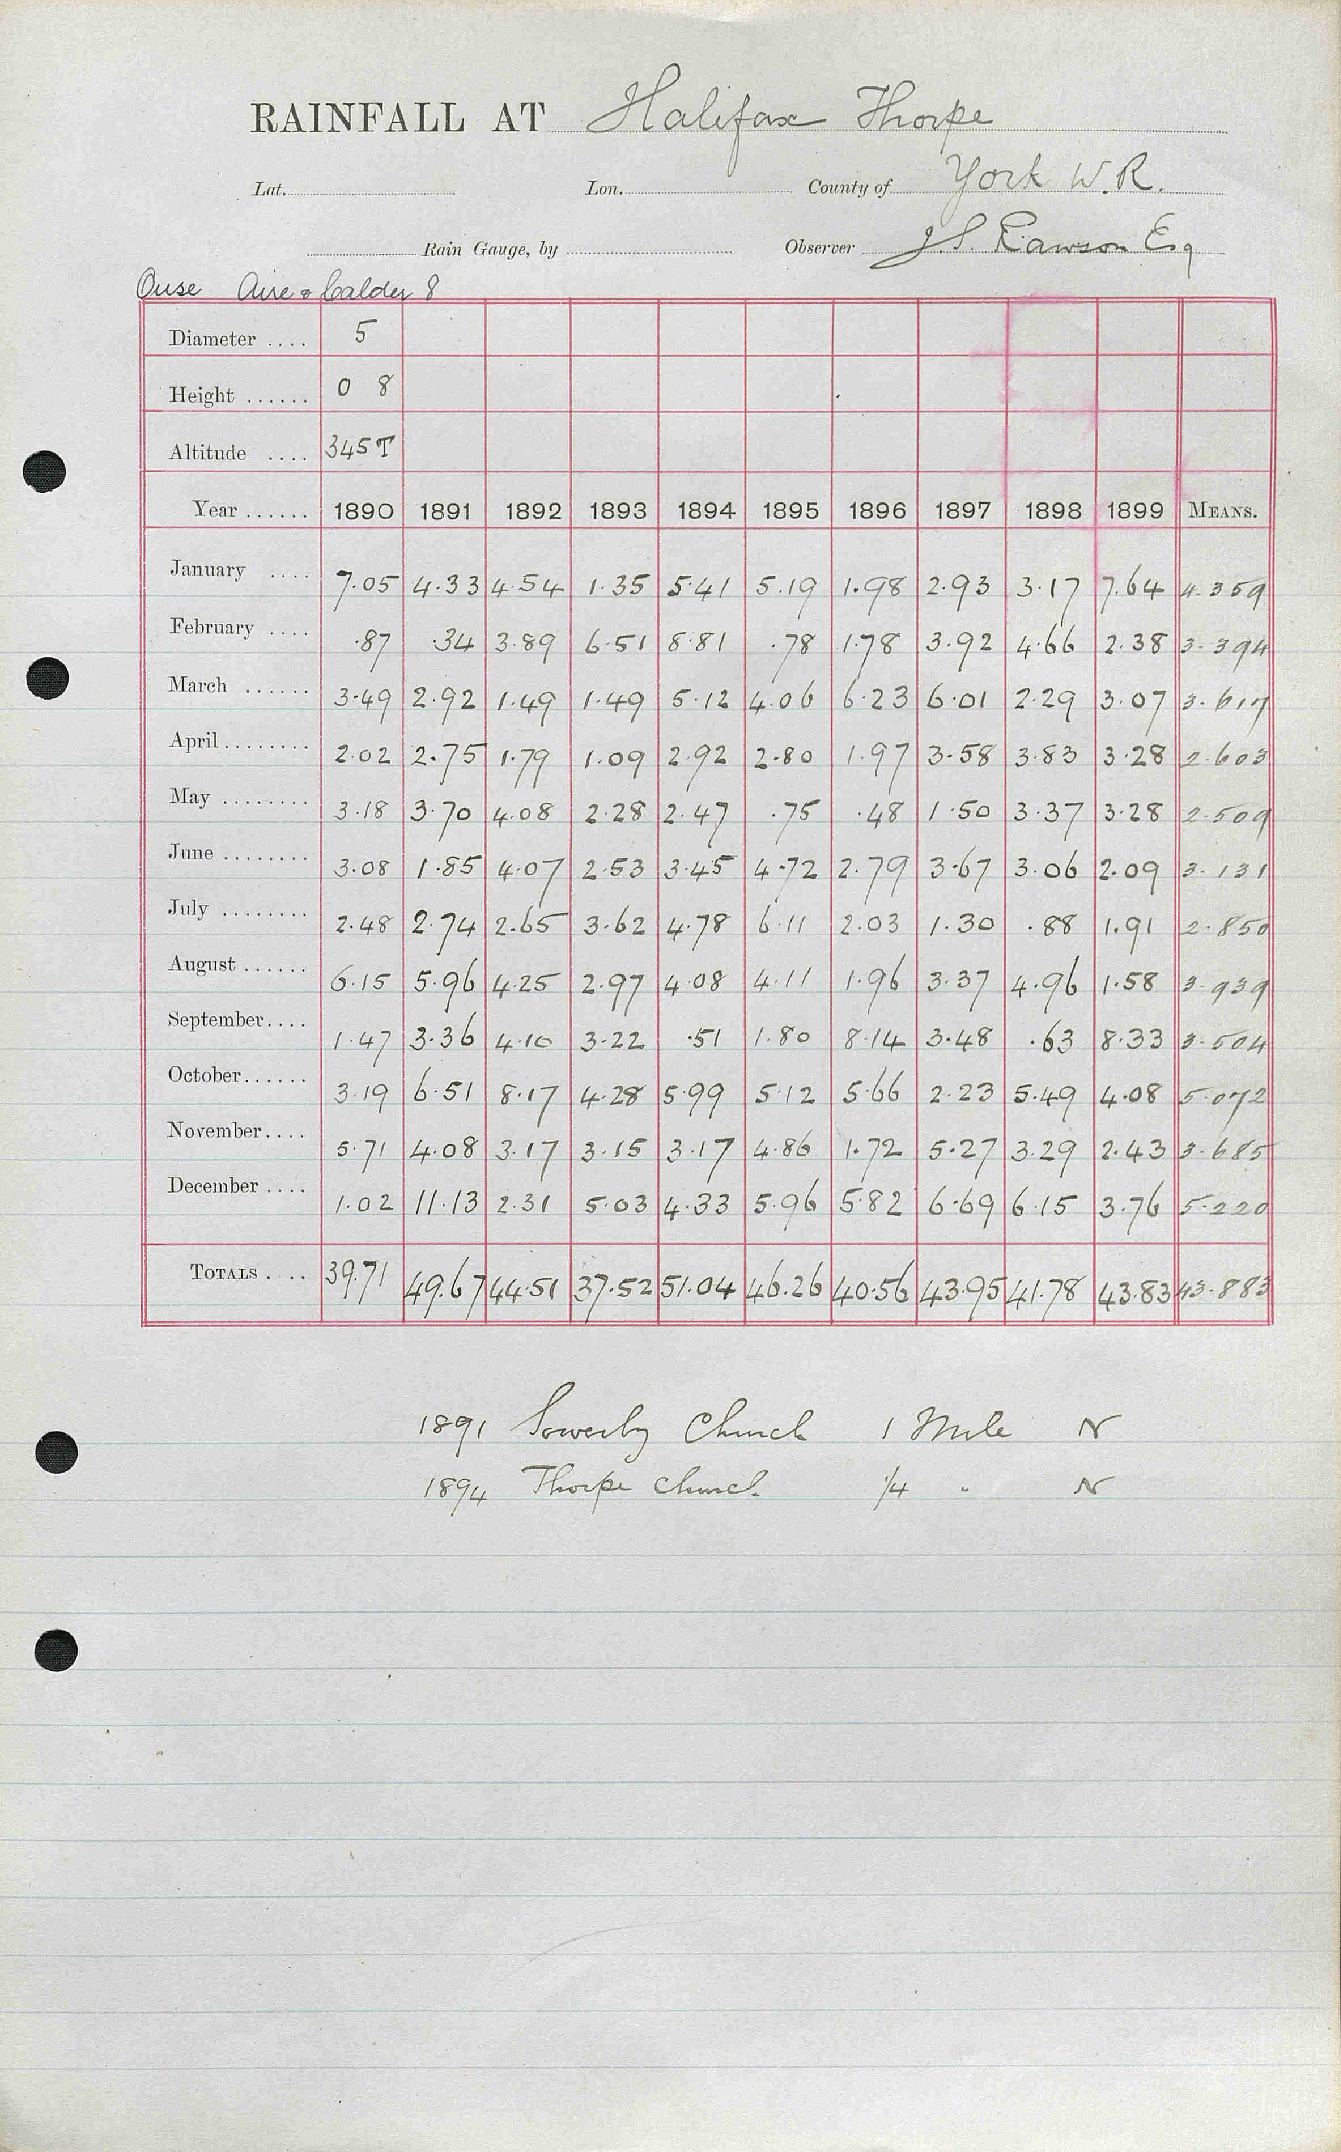 RAINFALL AT Halifax Thorpe
Lat. Lon. County of York W.R.
Rain Gauge, by Observer J.S. Rawson Esq
Ouse Aire & Calder 8
Diameter .... 5
Height ...... 0 8
Altitude .... 345T
Year ...... 1890 1891 1892 1893 1894 1895 1896 1897 1898 1899 MEANS.
January .... 7.05 4.33 4.54 1.35 5.41 5.19 1.98 2.93 3.17 7.64 4.359
February .... .87 .34 3.89 6.51 8.81 .78 1.78 3.92 4.66 2.38 3.394
March ...... 3.49 2.92 1.49 1.49 5.12 4.06 6.23 6.01 2.29 3.07 3.617
April ........ 2.02 2.75 1.79 1.09 2.92 2.80 1.97 3.58 3.83 3.28 2.603
May ........ 3.18 3.70 4.08 2.28 2.47 .75 .48 1.50 3.37 3.28 2.509
June ........ 3.08 1.85 4.07 2.53 3.45 4.72 2.79 3.67 3.06 2.09 3.131
July ........ 2.48 2.74 2.65 3.62 4.78 6.11 2.03 1.30 .88 1.91 2.850
August ...... 6.15 5.96 4.25 2.97 4.08 4.11 1.96 3.37 4.96 1.58 3.939
September.... 1.47 3.36 4.10 3.22 .51 1.80 8.14 3.48 .63 8.33 3.504
October...... 3.19 6.51 8.17 4.28 5.99 5.12 5.66 2.23 5.49 4.08 5.072
November.... 5.71 4.08 3.17 3.15 3.17 4.86 1.72 5.27 3.29 2.43 3.685
December .... 1.02 11.13 2.31 5.03 4.33 5.96 5.82 6.69 6.15 3.76 5.220
TOTALS .... 39.71 49.67 44.51 37.52 51.04 46.26 40.56 43.95 41.78 43.83 43.883
1891 Sowerby Church 1 Mile N
1894 Thorpe Church 1/4 " N